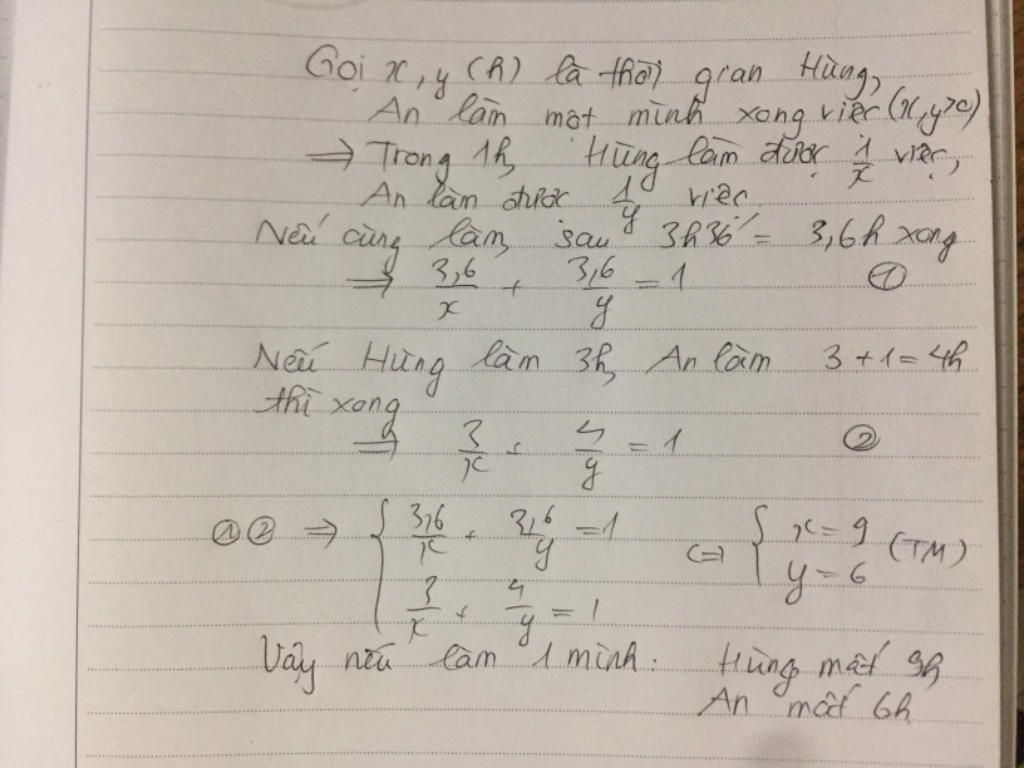 Gọi x, y (h) là thời gian Hùng,
An làm một mình xong việc (x, y > 0)
⇒ Trong 1h, Hùng làm được 1/x việc,
An làm được 1/y việc.
Nếu cùng làm, sau 3h36' = 3,6h xong
⇒ 3,6/x + 3,6/y = 1 ①
Nếu Hùng làm 3h, An làm 3 + 1 = 4h
thì xong
⇒ 3/x + 4/y = 1 ②
①② ⇒ { 3,6/x + 3,6/y = 1 ⇔ { x = 9 (TM)
3/x + 4/y = 1 y = 6
Vậy nếu làm 1 mình: Hùng mất 9h
An mất 6h